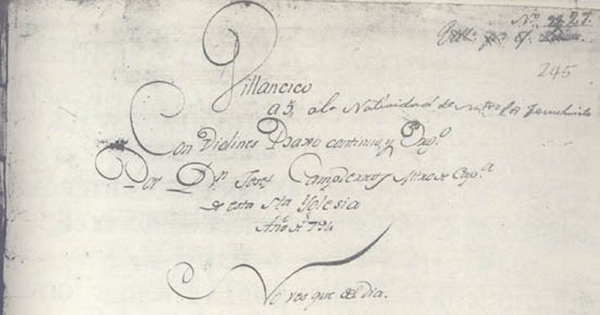 Nº 27.
245
Villancico
a 5, a la Natividad de
Con Violines Baxo continuo, y Org.º
Por Dn. Josef Campderros Mtro de Cap.ª
de esta Sta Yglesia
Año de 794
No ves que el dia.